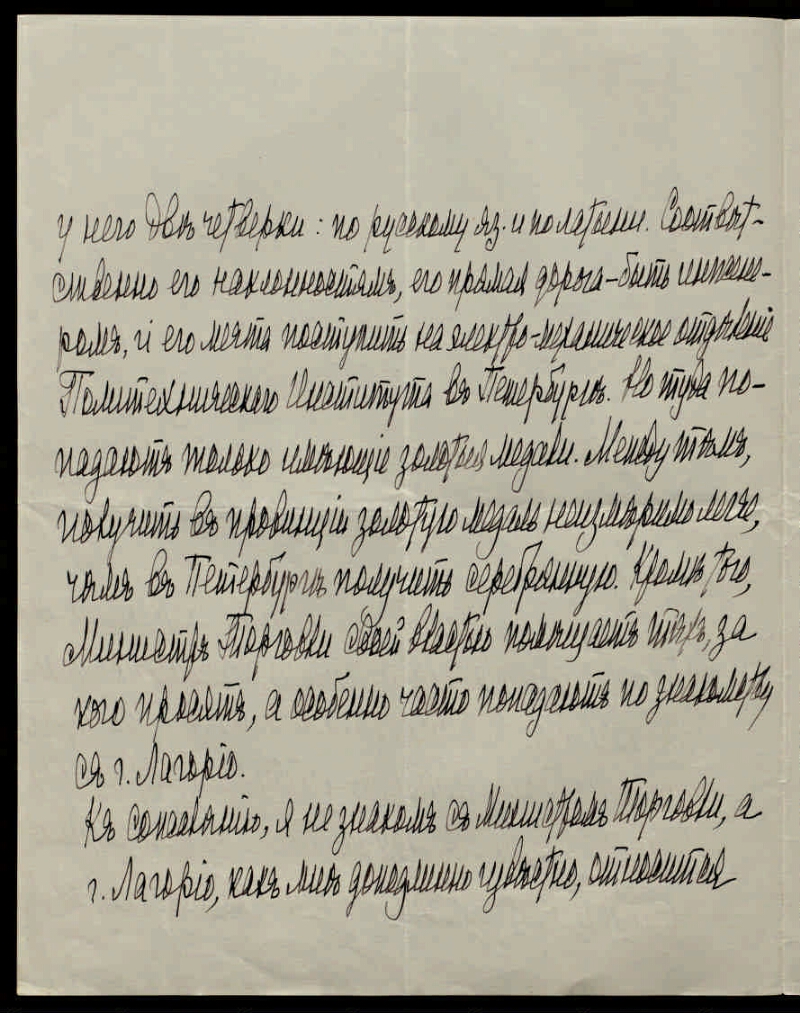 у него двѣ четверки: по русскому яз. и по латыни. Соотвѣт-
ственно его наклонностямъ, его прямая дорога – быть инжене-
ромъ, и его мечта поступить на электро-механическое отдѣленіе
Политехническаго Института въ Петербургѣ. Но туда по-
падаютъ только имѣющіе золотыя медали. Между тѣмъ,
получить въ провинціи золотую медаль неизмѣримо легче,
чѣмъ въ Петербургѣ получить серебрянную. Кромѣ того,
Министръ Торговли своей властью помѣщаетъ тѣхъ, за
кого просятъ, а особенно часто попадаютъ по знакомству
съ г. Лагоріо.
Къ сожалѣнію, я не знакомъ съ Министромъ Торговли, а
г. Лагоріо, какъ мнѣ доподлинно извѣстно, относится